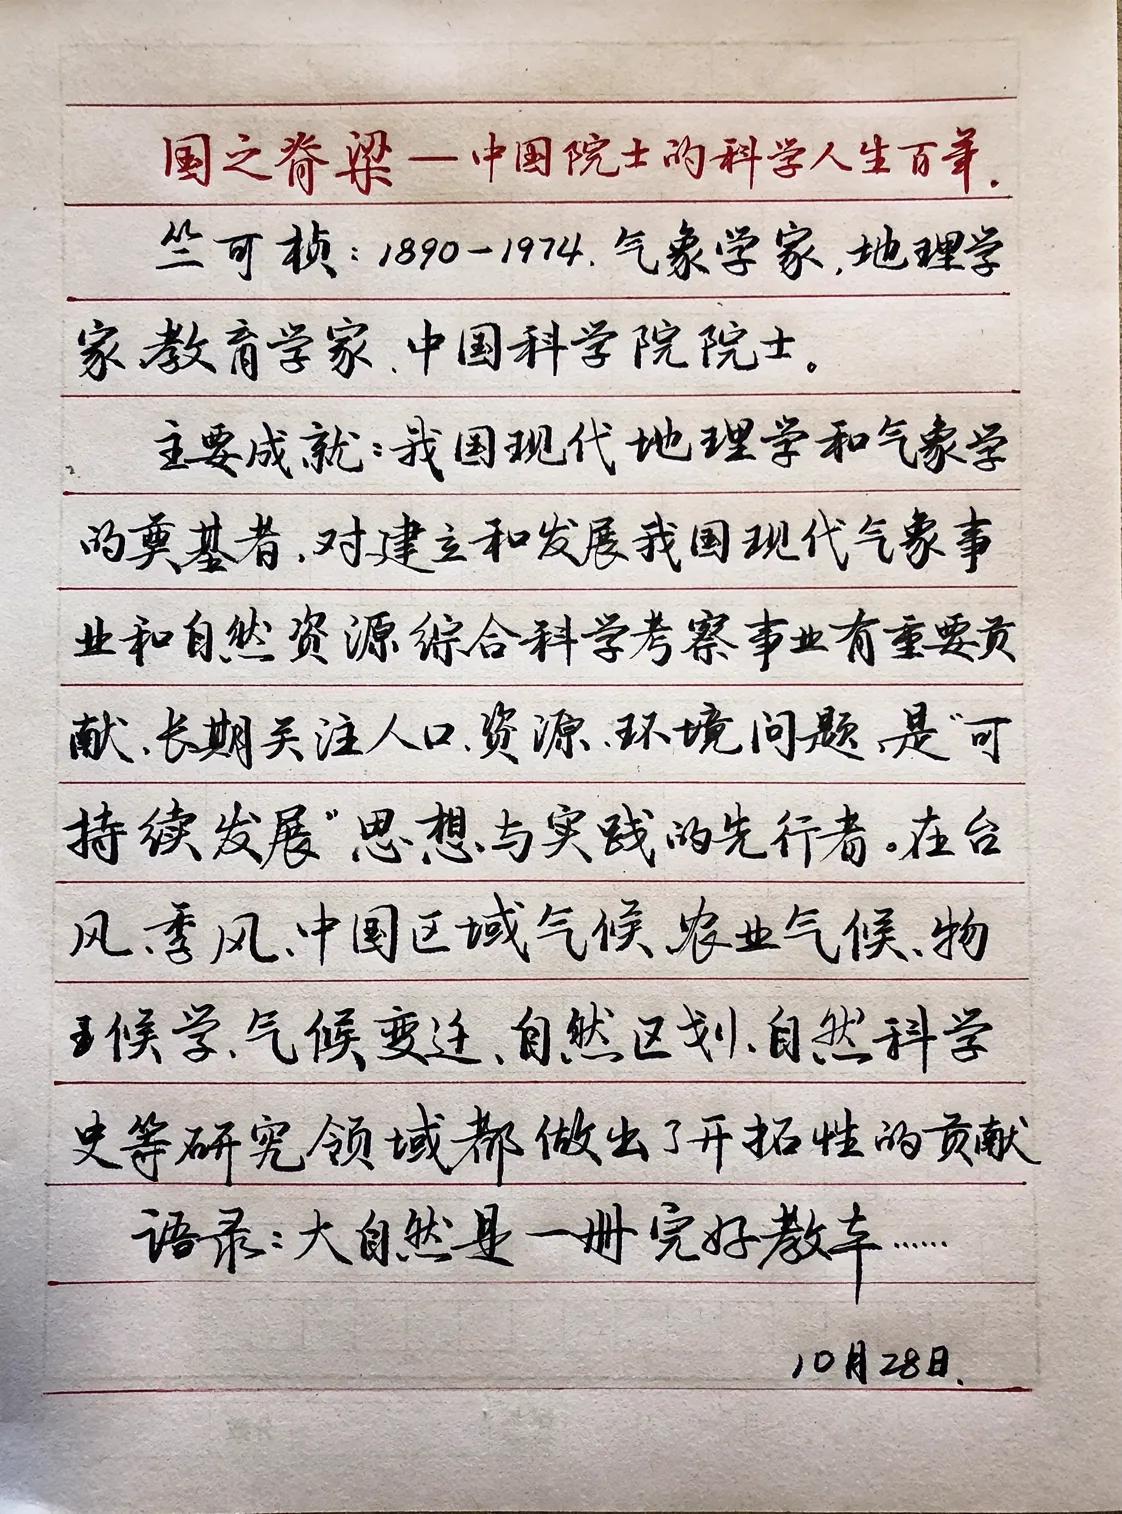 国之脊梁—中国院士的科学人生百年.
竺可桢：1890-1974.气象学家,地理学
家、教育学家、中国科学院院士。
主要成就：我国现代地理学和气象学
的奠基者、对建立和发展我国现代气象事
业和自然资源综合科学考察事业有重要贡
献、长期关注人口、资源、环境问题、是“可
持续发展”思想与实践的先行者。在台
风、季风、中国区域气候、农业气候、物
候学、气候变迁、自然区划、自然科学
史等研究领域都做出了开拓性的贡献
语录：大自然是一册完好教本……
10月28日.